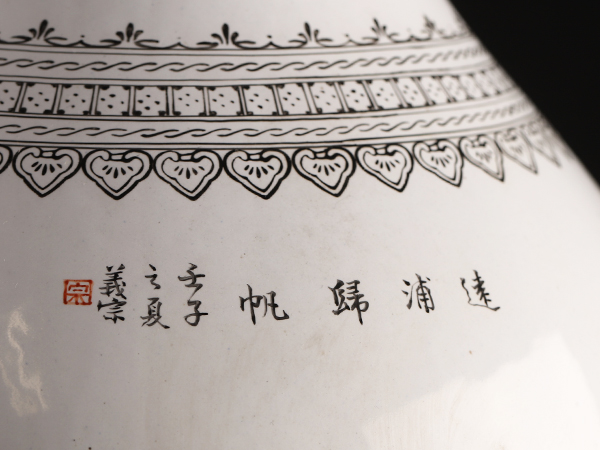 遠浦歸帆
壬子
之夏
義宗
宗